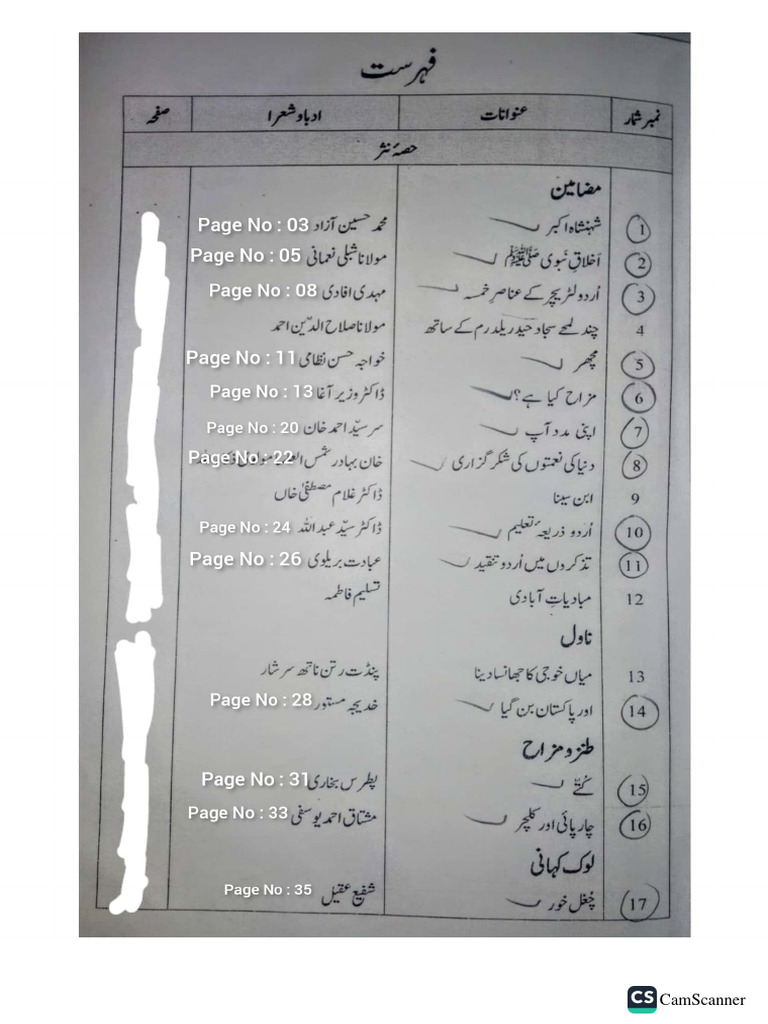 فہرست
نمبر شمار عنوانات ادبا و شعرا صفحہ
حصۂ نثر
مضامین
1 شہنشاہ اکبر محمد حسین آزاد Page No : 03
2 اَخلاقِ نبوی ﷺ مولانا شبلی نعمانی Page No : 05
3 اُردو لٹریچر کے عناصرِ خمسہ مہدی افادی Page No : 08
4 چند لمحے سجاد حیدر یلدرم کے ساتھ مولانا صلاح الدّین احمد
5 مچھر خواجہ حسن نظامی Page No : 11
6 مزاح کیا ہے؟ ڈاکٹر وزیر آغا Page No : 13
7 اپنی مدد آپ سر سیّد احمد خان Page No : 20
8 دنیا کی نعمتوں کی شکر گزاری خان بہادر شمس Page No : 22
9 ابن سینا ڈاکٹر غلام مصطفیٰ خاں
10 اُردو ذریعۂ تعلیم ڈاکٹر سیّد عبداللہ Page No : 24
11 تذکروں میں اُردو تنقید عبادت بریلوی Page No : 26
12 مبادیاتِ آبادی تسلیم فاطمہ
ناول
13 میاں خوجی کا جھانسا دینا پنڈت رتن ناتھ سرشار
14 اور پاکستان بن گیا خدیجہ مستور Page No : 28
طنز و مزاح
15 کُتّے پطرس بخاری Page No : 31
16 چارپائی اور کلچر مشتاق احمد یوسفی Page No : 33
لوک کہانی
17 چُغل خور شفیع عقیل Page No : 35
CS CamScanner